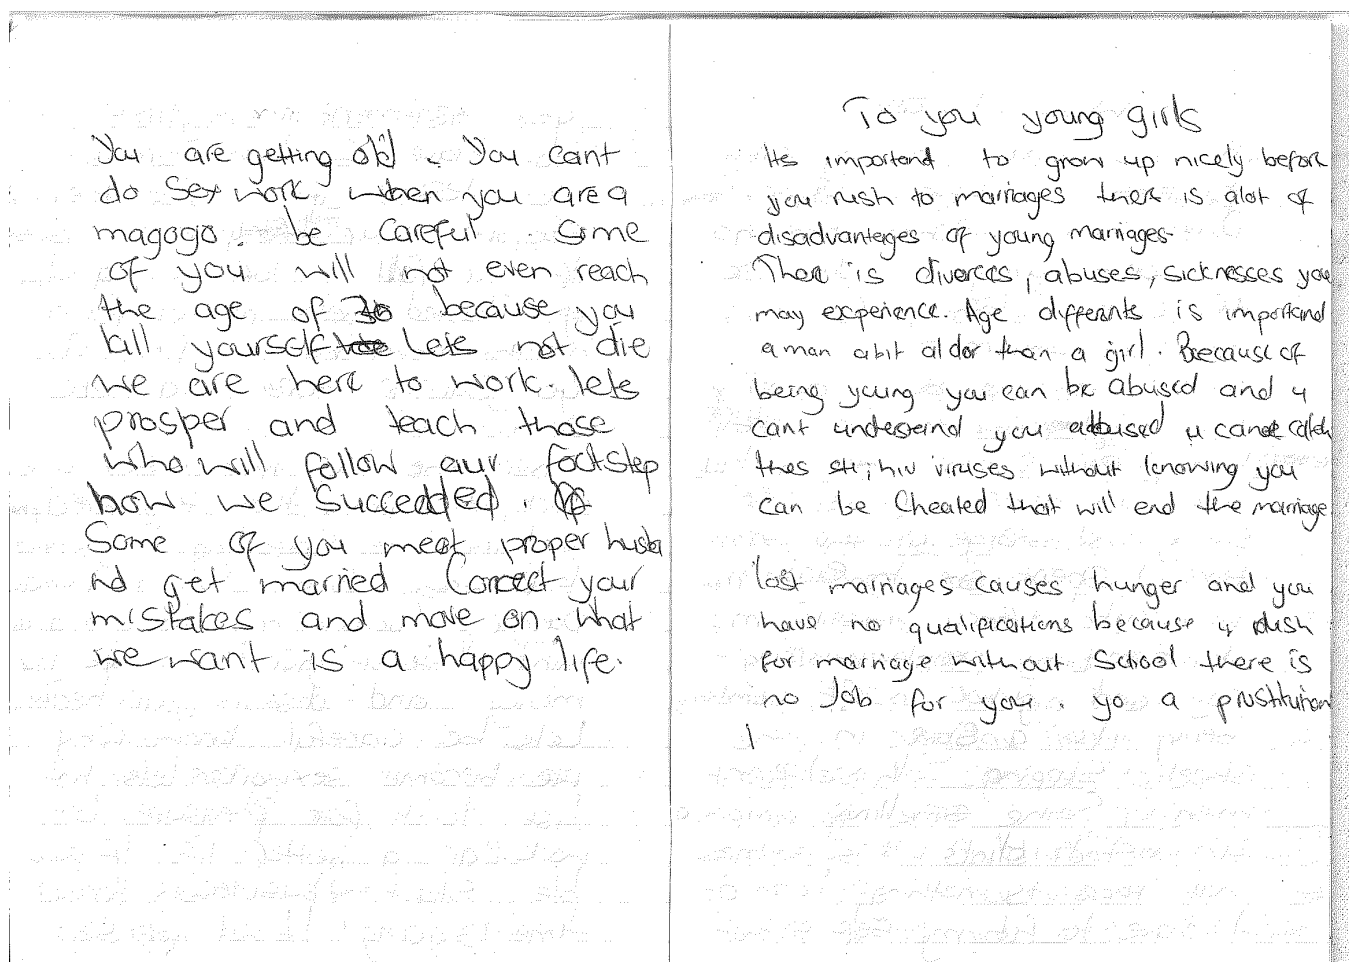 You are getting old. You cant
do Sex work when you are a
magogo. be careful Some
of you will not even reach
the age of 30 because you
kill yourself Lets not die
we are here to work. lets
prosper and teach those
who will follow our footstep
how we Succedded.
Some of you meet proper husba
nd get married Correct your
mistakes and move on what
we want is a happy life.
To you young girls
Its importend to grow up nicely before
you rush to marriages there is alot of
disadvanteges of young marriages
There is divorces, abuses, sicknesses you
may experience. Age differents is importend
a man abit older than a girl. Because of
being young you can be abused and u
cant understand you abused u can catch
thes sti, hiv viruses without knowing you
can be Cheated that will end the marriage.
last marriages causes hunger and you
have no qualifications because u rush
for marriage without School there is
no Job for you. yo a prostitution